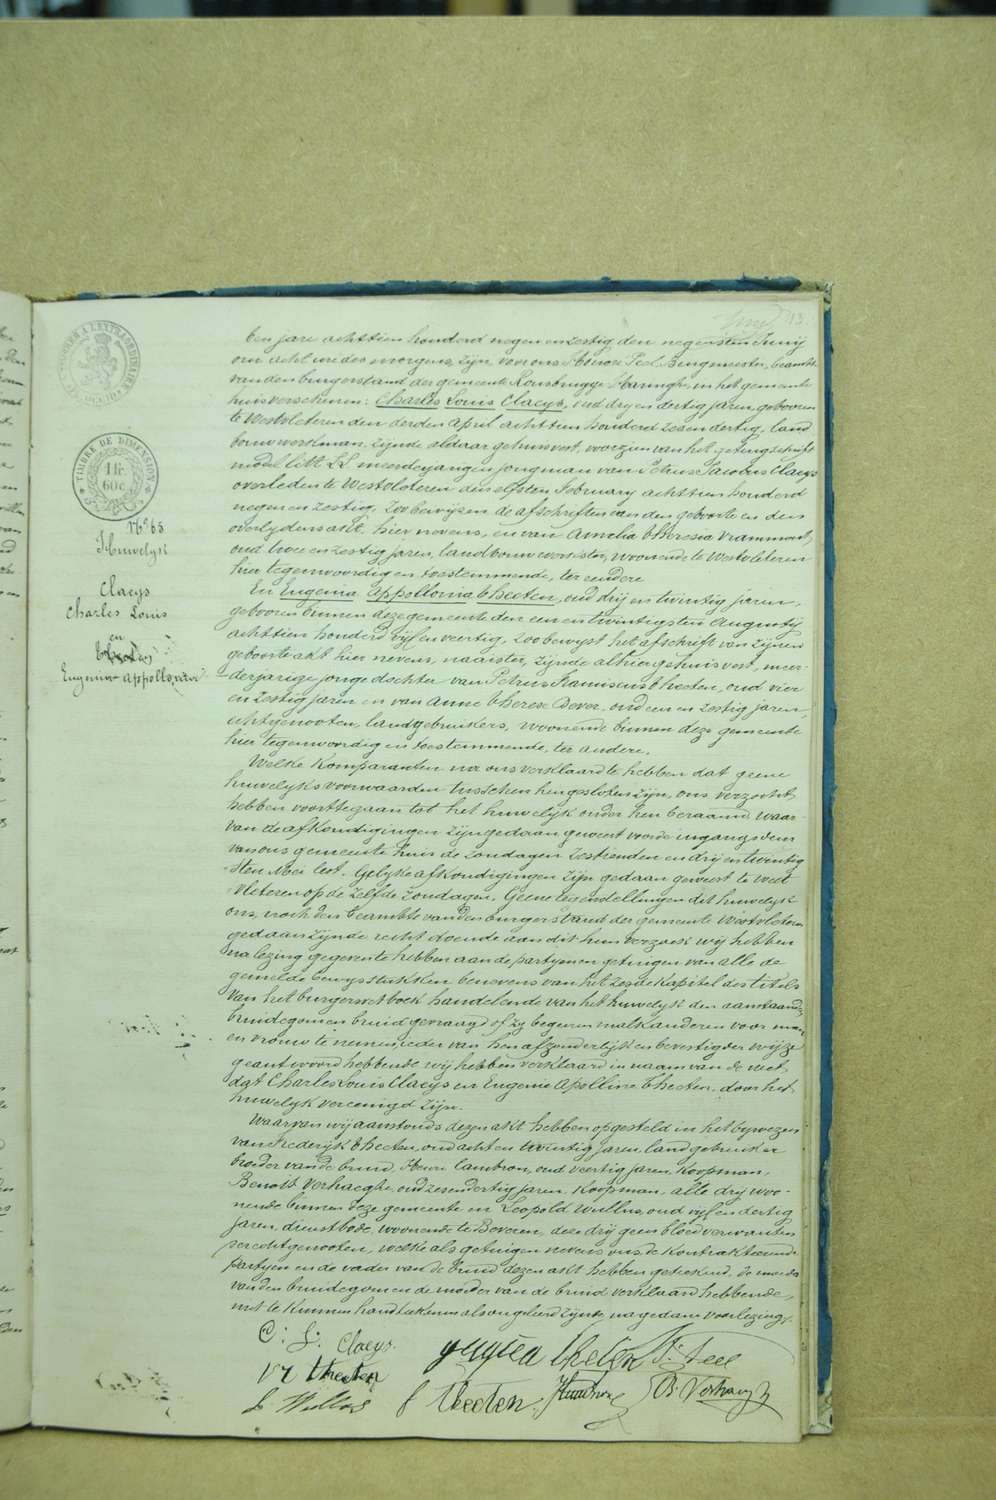 13
TIMBRE A L'EXTRAORDINAIRE
TIMBRE DE DIMENSION
1 fr.
60 c.
N° 65
Huwelijk
Claeys
Charles Louis
en
Theeten
Eugenie Appollonia
Ten jare achttien honderd negen en zestig den negensten Junij
om acht ure des morgens, zijn voor ons Peel Burgmeester, beambte
van den burgerstand der gemeente Rousbrugge Haringhe, in het gemeente
huis verschenen: Charles Louis Claeys, oud dry en dertig jaren, geboren
te Westvleteren den derden April achttien honderd zes en dertig, land
bouwwerkman, zijnde aldaar gehuisvest, voorzien van het getuigschrift
model litt LL meerderjarigen jongman van Petrus Jacobus Claeys
overleden te Westvleteren den elfsten February achttien honderd
negen en zestig, Zoo bewijzen de afschriften van den geboorte en den
overlydensakt, hier nevens, en van Amelia Theresia Vrammout,
oud twee en zestig jaren, landbouwwerkster, woonende te Westvleteren
hier tegenwoordig en toestemmende, ter eendere
En Eugenia Appollonia Theeten, oud drij en twintig jaren,
geboren binnen deze gemeente den een en twintigsten Augustij
achttien honderd vijf en veertig, Zoo bewyst het afschrift van zijnen
geboorte akt hier nevens, naaister, zijnde alhier gehuisvest, meer-
derjarige jonge dochter van Petrus Franciscus Theeten, oud vier
en zestig jaren en van Anne Therese Bever, oud een en zestig jaren,
echtgenooten, landgebruikers, woonende binnen deze gemeente
hier tegenwoordig en toestemmende, ter andere.
Welke Komparanten na ons verklaard te hebben dat geene
huwelyks voorwaarden tusschen hen gesloten zijn, ons verzocht
hebben voorttegaan tot het huwelijk onder hen beraamd, waar-
van de afkondigingen zijn gedaan geweest voor de ingangsdeur
van ons gemeente huis de zondagen zestienden en drij en twintig
sten Mei lest. Gelyke afkondigingen zijn gedaan geweest te West-
vleteren op de zelfde zondagen, Geene tegenstellingen dit huwelyk
ons, noch den beambte van den burgerstand der gemeente Westvleteren
gedaan zijnde recht doende aan dit hun verzoek wij hebben
na lezing gegeven te hebben aan de partijen en getuigen van alle de
gemelde bewysstukken benevens van het zesde kapitel des titels
van het burgerwetboek handelende van het huwelyk den aanstaande
bruidegom en bruid gevraagd of zy begeeren malkanderen voor man
en vrouw te nemen, ieder van hen afzonderlijk en bevestigder wijze
geantwoord hebbende wij hebben verklaard in naam van de wet
dat Charles Louis Claeys en Eugenie Apolline Theeten, door het
huwelyk vereenigd zijn.
Waarvan wij aanstonds dezen akt hebben opgesteld in het bijwezen
van Frederijk Theeten, oud acht en twintig jaren, landgebruiker
broeder van de bruid, Henri Cambron, oud veertig jaren, Koopman,
Benoit Verhaeghe, oud zes en dertig jaren, Koopman, alle drij woo-
nende binnen deze gemeente en Leopold Wullus, oud vijf en dertig
jaren, dienstbode, woonende te Beveren, deze drij geen bloedverwanten
der echtgenooten, welke als getuigen nevens ons de Kontrakteerende
partyen en de vader van de bruid dezen akt hebben geteekend, de moeder
van den bruidegom en de moeder van de bruid verklaard hebbende,
niet te kunnen handteekenen als ongeleerd zijnde, na gedane voorlezing.
C. L. Claeys eugenea theeten Peel
theeten
L Wullus f theeten B. Verhaeghe